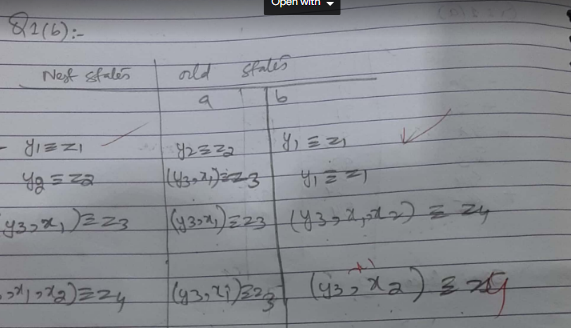 Open with
Q1(b):-
Next states old states
a b
- y1≡z1 y2≡z2 y1≡z1
y2≡z2 (y3,x1)≡z3 y1≡z1
y3,x1)≡z3 (y3,x1)≡z3 (y3,x1,x2)≡z4
,x1,x2)≡z4 (y3,x1)≡z3 (y3,x2)≡